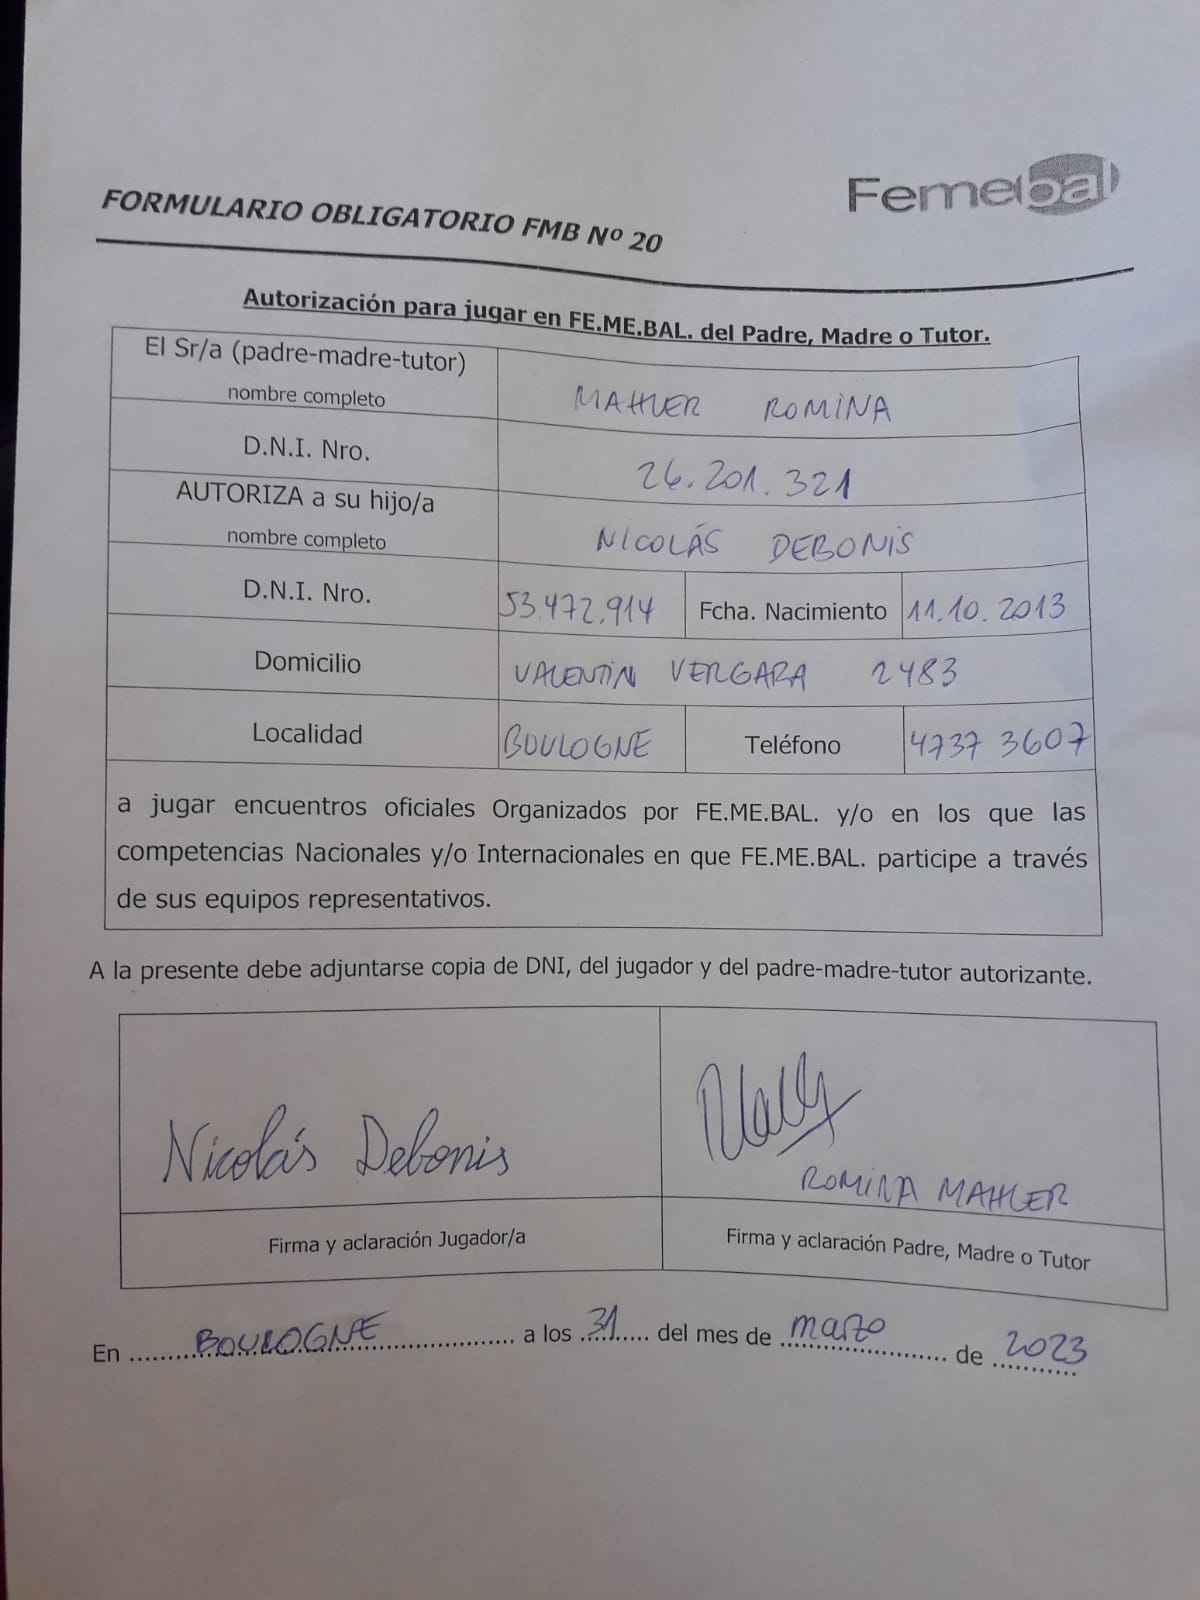 Femebal
FORMULARIO OBLIGATORIO FMB Nº 20
Autorización para jugar en FE.ME.BAL. del Padre, Madre o Tutor.
El Sr/a (padre-madre-tutor)
nombre completo
MAHLER ROMINA
D.N.I. Nro.
26.201.321
AUTORIZA a su hijo/a
nombre completo
NICOLÁS DEBONIS
D.N.I. Nro.
53.472.914
Fcha. Nacimiento
11.10.2013
Domicilio
VALENTIN VERGARA 2483
Localidad
BOULOGNE
Teléfono
4737 3607
a jugar encuentros oficiales Organizados por FE.ME.BAL. y/o en los que las
competencias Nacionales y/o Internacionales en que FE.ME.BAL. participe a través
de sus equipos representativos.
A la presente debe adjuntarse copia de DNI, del jugador y del padre-madre-tutor autorizante.
Nicolás Debonis
ROMINA MAHLER
Firma y aclaración Jugador/a
Firma y aclaración Padre, Madre o Tutor
En BOULOGNE a los 31 del mes de marzo de 2023